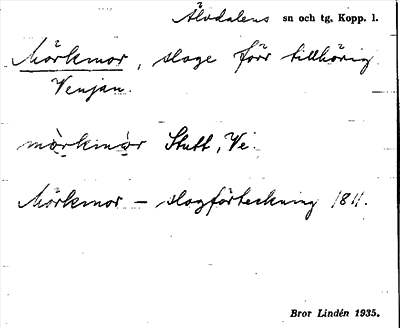 Älvdalens sn och tg, Kopp. l.
Mörkmor, sloge förr tillhörig
Venjan.
mörkmor Stutt, Ve.
Mörkmor – slogförteckning 1811.
Bror Lindén 1935.